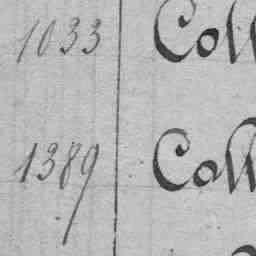 1033 Coll
1389 Coll